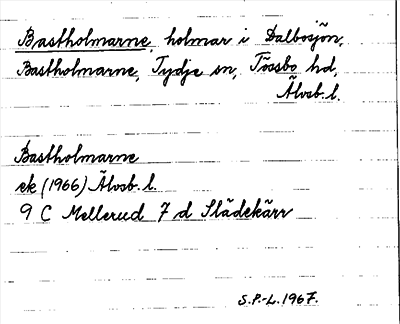 Bastholmarne, holmar i Dalbosjön,
Bastholmarne, Tydje sn, Tössbo hd,
Älvsb. l.
Bastholmarne
ek (1966) Älvsb. l.
9 C Mellerud 7 d Slädekärr
S.P.-L. 1967.